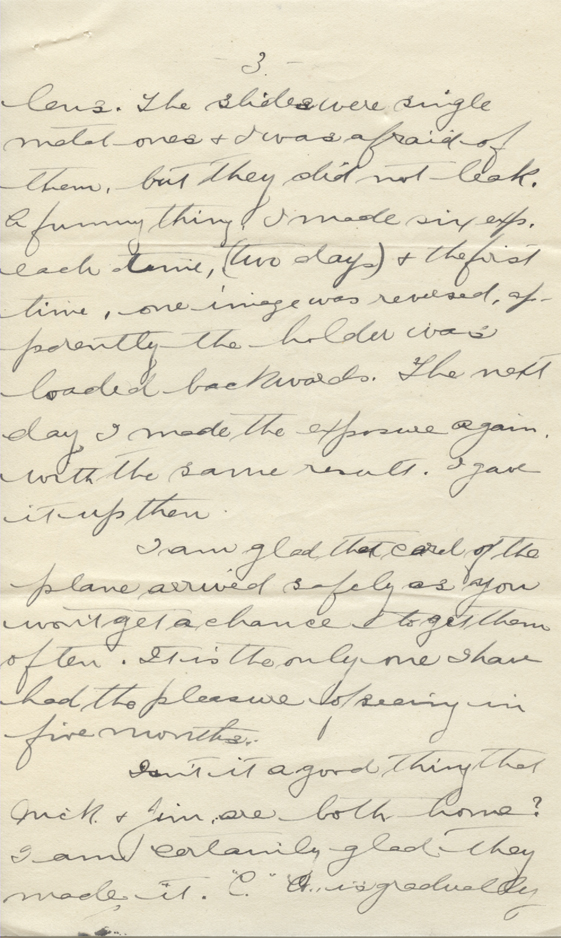 3.
lens. The slides were single
metal ones & I was afraid of
them, but they did not leak.
A funny thing, I made six exp.
each time, (two days) & the first
time, one image was reversed, ap-
parently the holder was
loaded backwards. The next
day I made the exposure again,
with the same result. I gave
it up then.
I am glad that card of the
plane arrived safely as you
won't get a chance to get them
often. It is the only one I have
had the pleasure of seeing in
five months.
Isn't it a good thing that
& Jim are both home?
I am certainly glad they
made it. "C." is gradually